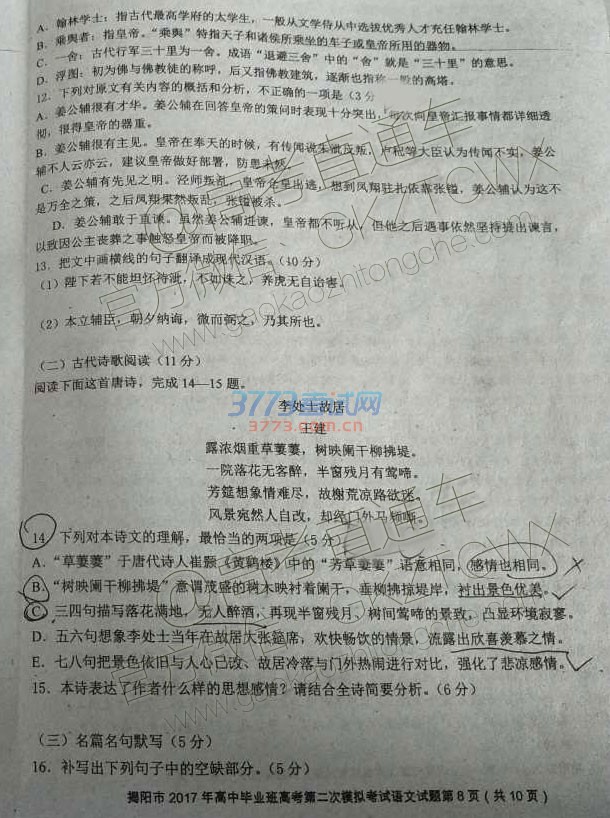 A．翰林学士：指古代最高学府的太学生，一般从文学侍从中选拔优秀人才充任翰林学士。
B．乘舆者：指皇帝。“乘舆”特指天子和诸侯所乘坐的车子或皇帝所用的器物。
C．一舍：古代行军三十里为一舍。成语“退避三舍”中的“舍”就是“三十里”的意思。
D．浮图：初为佛与佛教徒的称呼，后又指佛教建筑，逐渐也指称一般的高塔。
12．下列对原文有关内容的概括和分析，不正确的一项是（3分
A．姜公辅很有才华。姜公辅在回答皇帝的策问时表现十分突出，每次向皇帝汇报事情都详细透
彻，很得皇帝的器重。
B．姜公辅很有主见。皇帝在奉天的时候，有传闻说朱泚反叛，卢杞等大臣认为传闻不实，姜公
辅不人云亦云，建议皇帝做好部署，防患未然。
C．姜公辅有先见之明。泾师叛乱，皇帝仓皇出逃，想到凤翔驻扎依靠张镒，姜公辅认为这不
是万全之策，之后凤翔果然叛乱，张镒被杀。
D．姜公辅敢于直谏。虽然姜公辅进谏，皇帝都不听从，但他之后遇事依然坚持提出谏言，
以致因公主丧葬之事触怒皇帝而被降职。
13．把文中画横线的句子翻译成现代汉语。（10分）
（1）陛下若不能坦怀待泚，不如诛之，养虎无自诒害。
（2）本立辅臣，朝夕纳诲，微而弼之，乃其所也。
（二）古代诗歌阅读（11分）
阅读下面这首唐诗，完成14—15题。
3773考试网
李处士故居
3773.com.cn
王建
露浓烟重草萋萋，树映阑干柳拂堤。
一院落花无客醉，半窗残月有莺啼。
芳筵想象情难尽，故榭荒凉路欲迷。
风景宛然人自改，却经门外马频嘶。
14．下列对本诗文的理解，最恰当的两项是（5分）
A．“草萋萋”于唐代诗人崔颢《黄鹤楼》中的“芳草萋萋”语意相同，感情也相同。
B．“树映阑干柳拂堤”意谓茂盛的树木映衬着阑干，垂柳拂掠堤岸，衬出景色优美。
C．三四句描写落花满地，无人醉酒、再现半窗残月、树间莺啼的景致，凸显环境寂寥。
D．五六句想象李处士当年在故居大张筵席，欢快畅饮的情景，流露出欣喜羡慕之情。
E．七八句把景色依旧与人心已改、故居冷落与门外热闹进行对比，强化了悲凉感情。
15．本诗表达了作者什么样的思想感情？请结合全诗简要分析。（6分）
（三）名篇名句默写（5分）
16．补写出下列句子中的空缺部分。（5分）
揭阳市2017年高中毕业班高考第二次模拟考试语文试题第8页（共10页）
官方微信：GKZTCWX
www.gaokaozhitongche.com
高考直通车